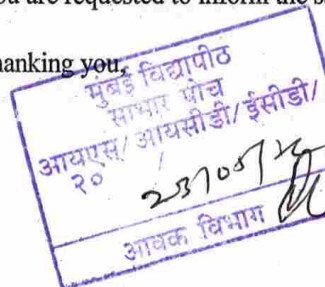 ou are requested to inform the s
anking you,
मुंबई विद्यापीठ
साभार पोच
आयएस/ आयसीडी/ ईसीडी/
२० /
आवक विभाग